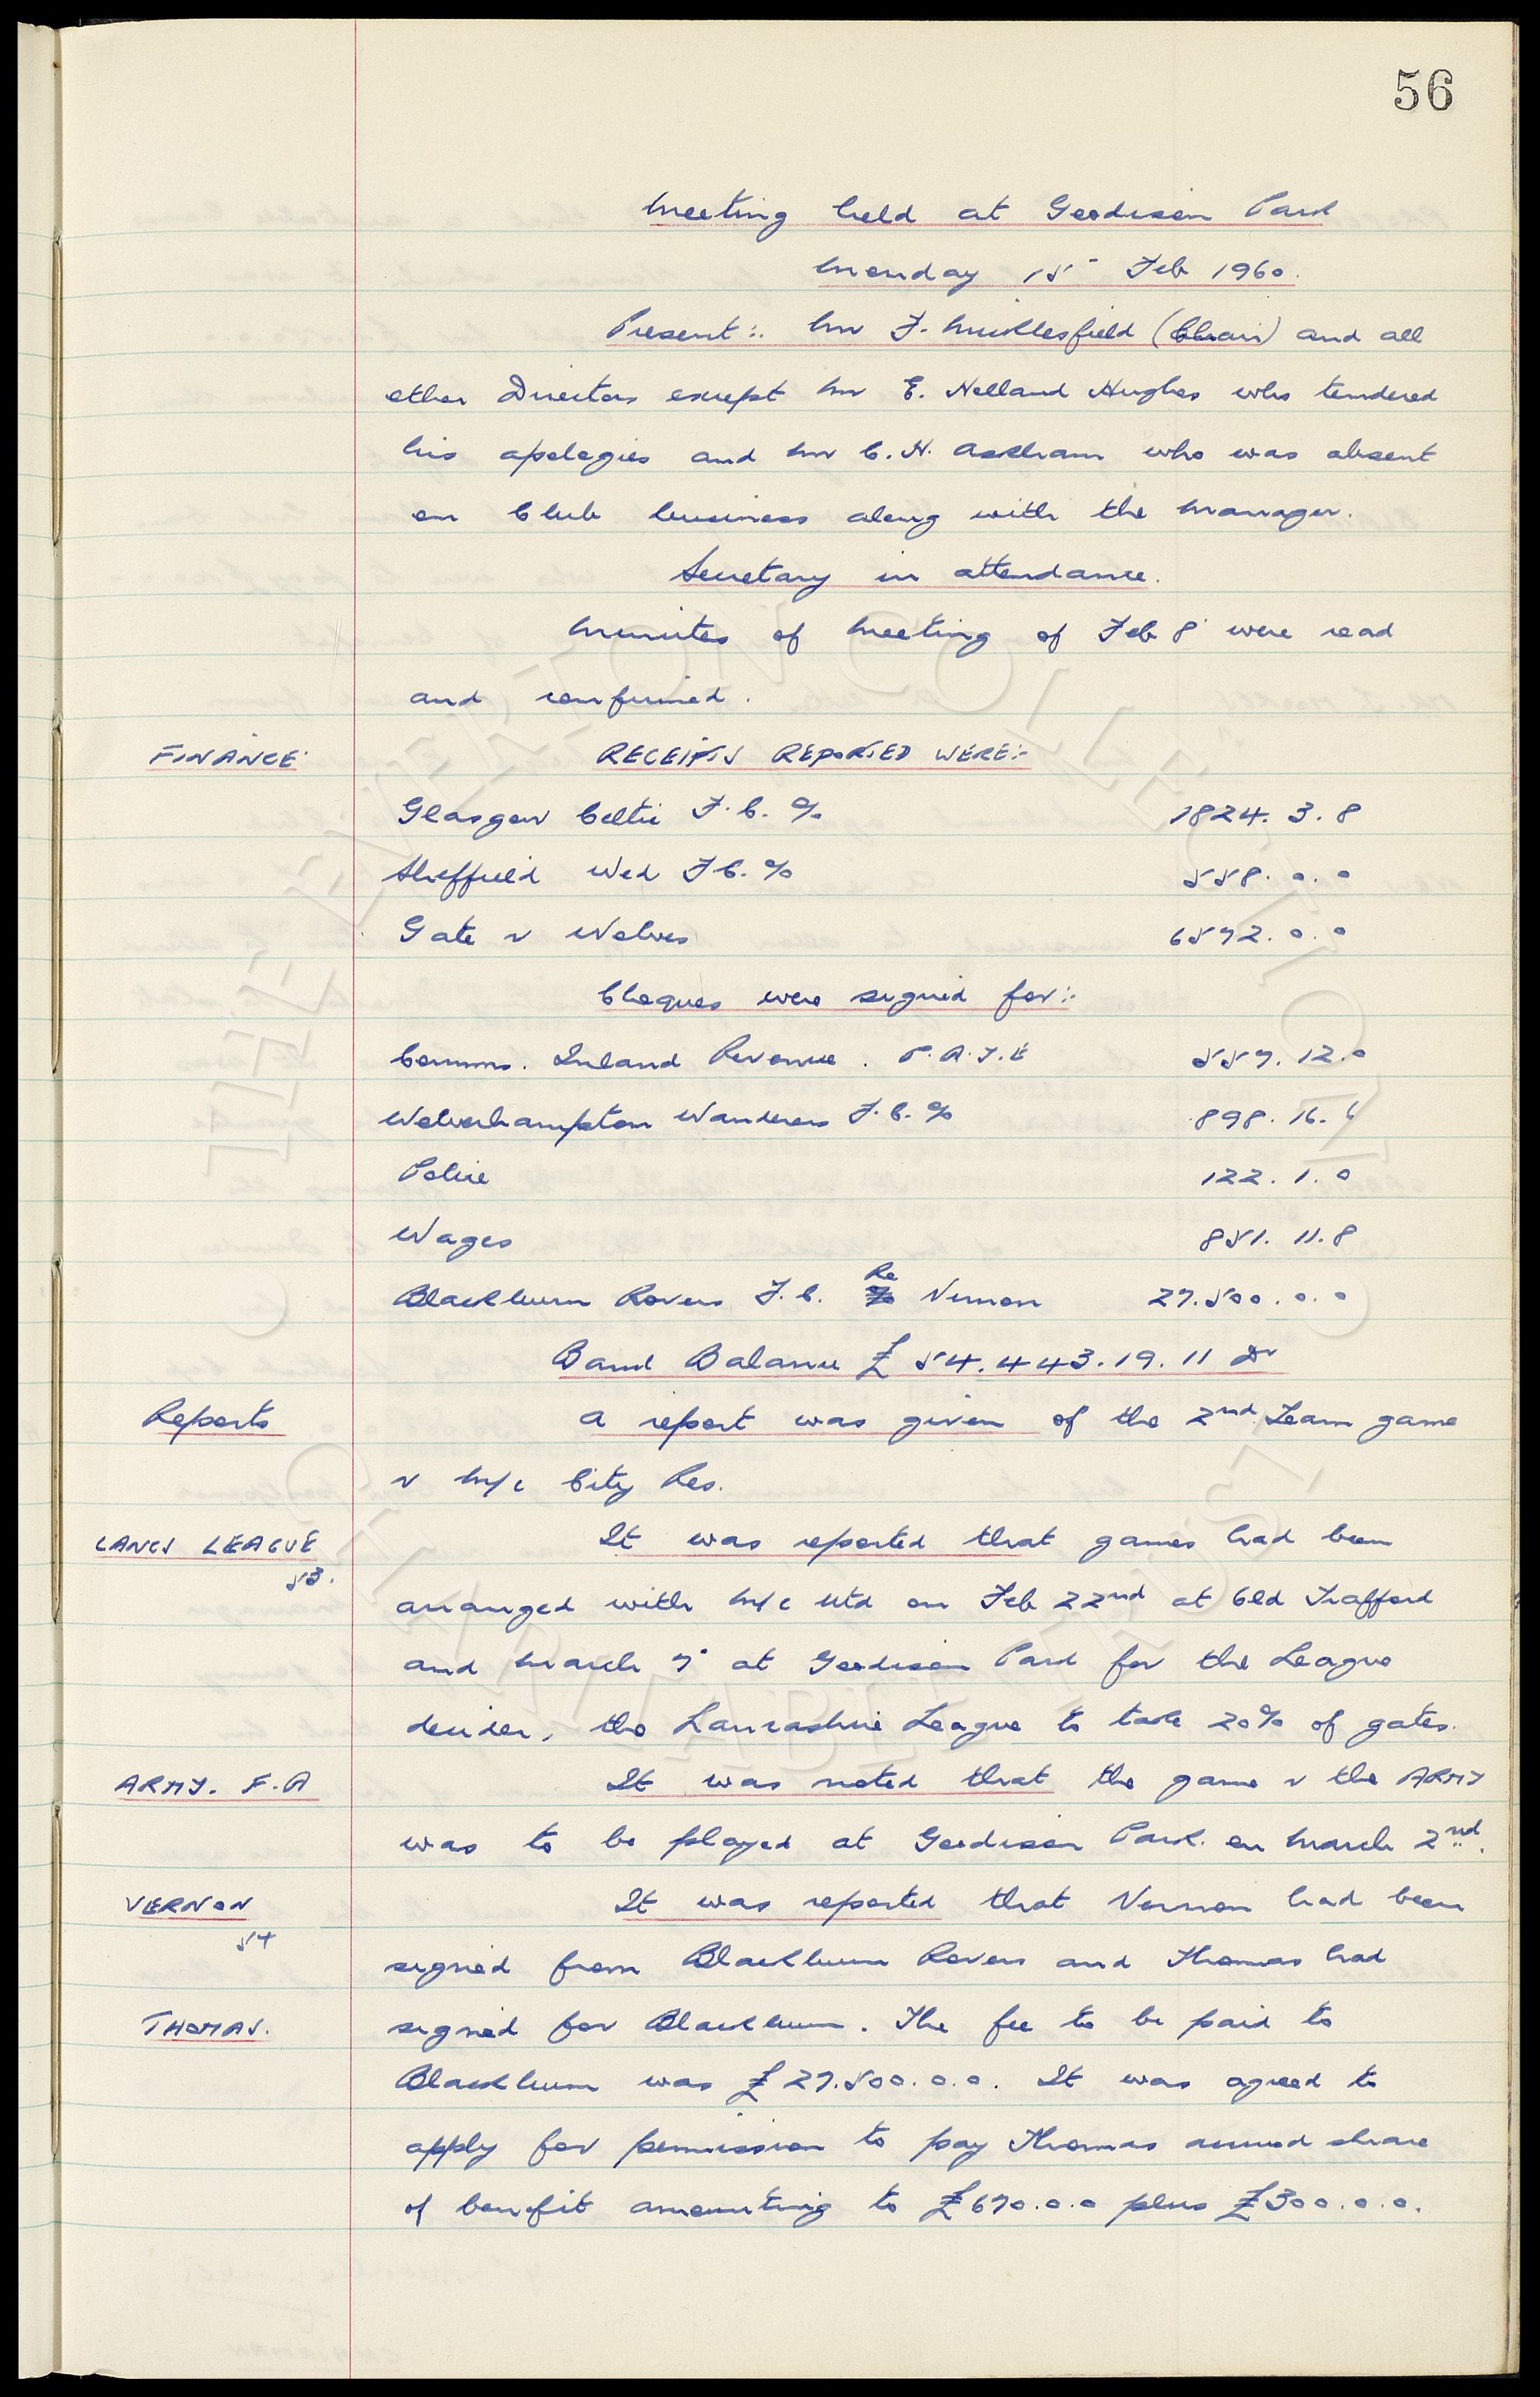 56
Meeting held at Goodison Park
Monday 15th Feb 1960.
Present:- Mr F. Micklesfield (Chair) and all
other Directors except Mr E. Holland Hughes who tendered
his apologies and Mr C. H. Askham who was absent
on Club business along with the Manager.
Secretary in attendance.
Minutes of Meeting of Feb 8th were read
and confirmed.
FINANCE. RECEIPTS REPORTED WERE:-
Glasgow Celtic F.C. % 1824. 3. 8
Sheffield Wed F.C. % 558. 0. 0
Gate v Wolves 6572. 0. 0
Cheques were signed for:-
Comms. Inland Revenue. P.A.Y.E 557. 12. 0
Wolverhampton Wanderers F.C. % 898. 16. 6
Police 122. 1. 0
Wages 851. 11. 8
Blackburn Rovers F.C. Re Vernon 27.500. 0. 0
Bank Balance £ 54.443.19.11 Dr
Reports A report was given of the 2nd Team game
v M/c City Res.
LANCS LEAGUE It was reported that games had been
53.
arranged with M/c Utd on Feb 22nd at Old Trafford
and March 7th at Goodison Park for the League
decider, the Lancashire League to take 20% of gates.
ARMY. F.A It was noted that the game v the ARMY
was to be played at Goodison Park on March 2nd.
VERNON It was reported that Vernon had been
54
signed from Blackburn Rovers and Thomas had
THOMAS. signed for Blackburn. The fee to be paid to
Blackburn was £27.500.0.0. It was agreed to
apply for permission to pay Thomas accrued share
of benefit amounting to £670.0.0 plus £300.0.0.
THE EVERTON COLLECTION
CHARITABLE TRUST